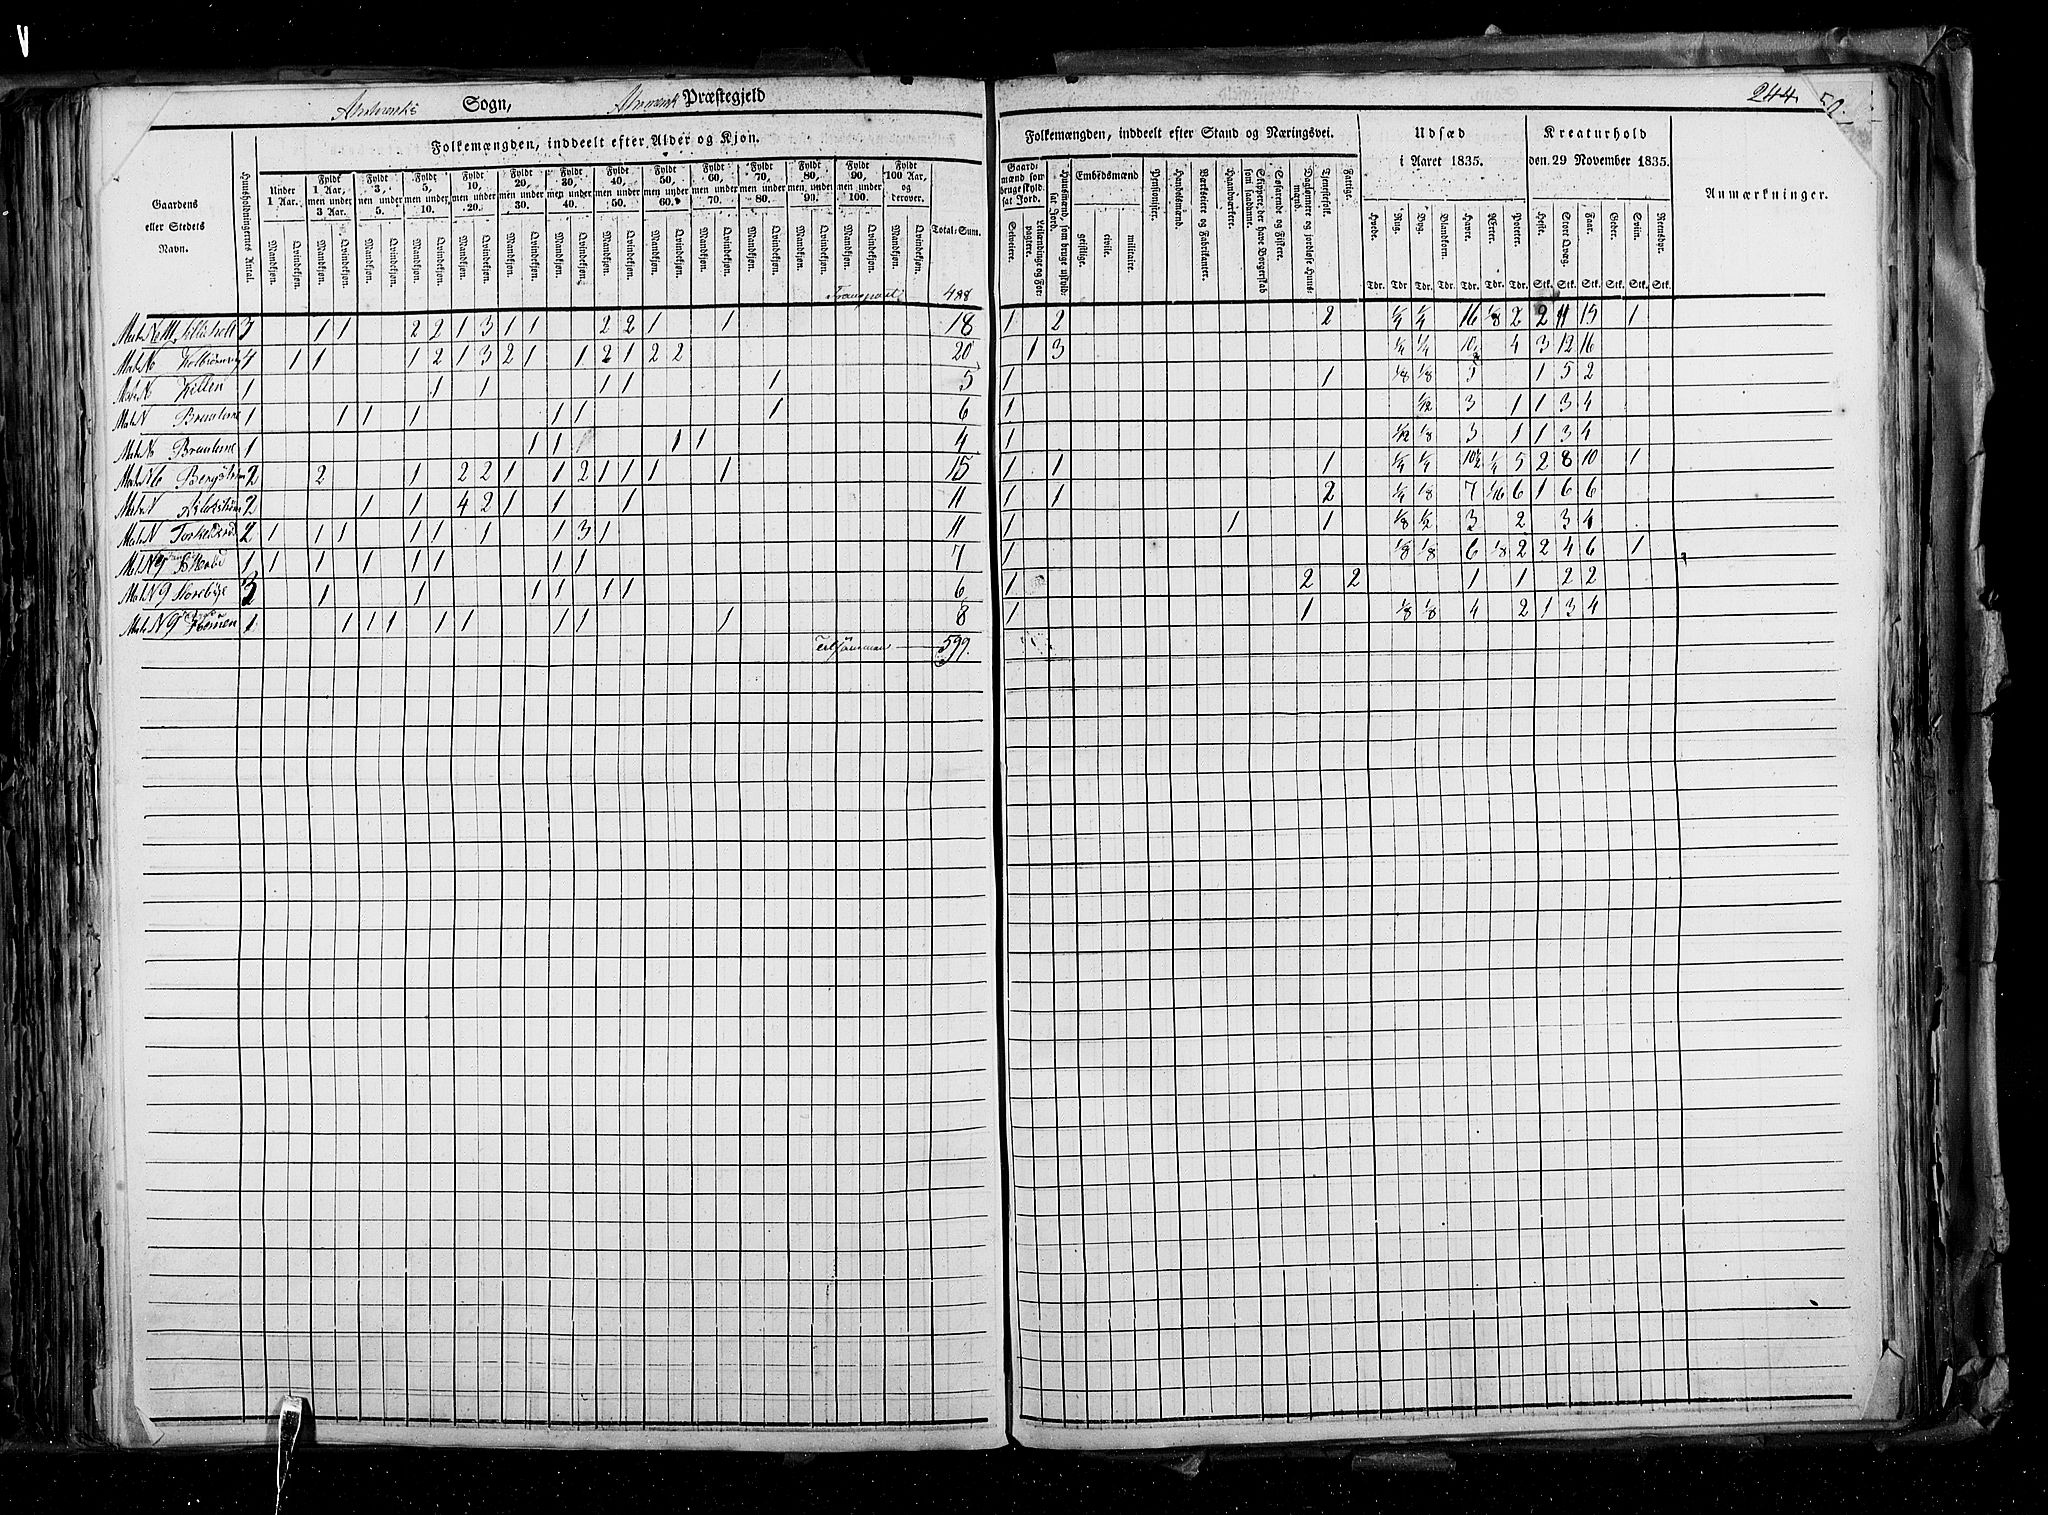 Sogn, Præstegjeld
244. 50.
Gaardens eller Stedets Navn.
Huusholdningernes Antal.
Folkemængden, inddeelt efter Alder og Kjøn.
Under 1 Aar.
Fyldt 1 Aar, men under 3 Aar.
Fyldt 3, men under 5.
Fyldt 5, men under 10.
Fyldt 10, men under 20.
Fyldt 20, men under 30.
Fyldt 30, men under 40.
Fyldt 40, men under 50.
Fyldt 50, men under 60.
Fyldt 60, men under 70.
Fyldt 70, men under 80.
Fyldt 80, men under 90.
Fyldt 90, men under 100.
Fyldt 100 Aar, og derover.
Mandkjøn. Qvindekjøn.
Total-Sum.
Folkemængden, inddeelt efter Stand og Næringsvei.
Gaardmænd som bruge skyldsat Jord.
Selveiere.
Leilændinge og Forpagtere.
Huusmænd, som bruge uskyldsat Jord.
Embedsmænd
geistlige.
civile.
militaire.
Pensionister.
Handelsmænd.
Værkseiere og Fabrikanter.
Haandværkere.
Skippere, der have Borgerskab som saadanne.
Søfarende og Fiskere.
Daglønnere og jordløse Huusmænd.
Tjenestefolk.
Fattige.
Udsæd i Aaret 1835.
Hvede. Rug. Byg. Blandkorn. Havre. Erter. Poteter.
Tdr. Tdr Tdr. Tdr. Tdr. Tdr. Tdr.
Kreaturhold den 29 November 1835.
Heste. Stort Qvæg. Faar. Geder. Sviin. Reensdyr.
Stk. Stk. Stk. Stk. Stk. Stk.
Anmærkninger.
Transport 488
3 1 1 2 2 1 3 1 1 2 2 1 1 18 1 2 2 1/4 1/4 16 1/8 2 2 11 15 1
4 1 1 1 2 1 3 2 1 1 2 1 2 2 20 1 3 1/4 1/4 10 4 3 12 16
1 1 1 1 1 1 5 1 1 1/8 1/8 5 1 5 2
1 1 1 1 1 1 1 6 1 1/2 3 1 1 3 4
1 1 1 1 1 4 1 1/12 1/8 3 1 1 3 4
2 2 1 2 2 1 1 2 1 1 1 1 15 1 1 1 1/4 1/4 10 1/2 1/4 5 2 8 10 1
2 1 1 4 2 1 1 1 11 1 1 2 1/4 1/8 7 1/16 6 1 6 6
2 1 1 1 1 1 1 1 3 1 11 1 1 1 1/8 1/2 3 2 3 4
1 1 1 1 1 1 1 1 7 1 1/8 1/8 6 1/8 2 2 4 6 1
Storebye 1 1 1 1 1 1 6 1 2 2 1 1 2 2
1 1 1 1 1 1 1 1 1 8 1 1 1/8 1/8 4 2 1 3 4
Tilsammen 599.